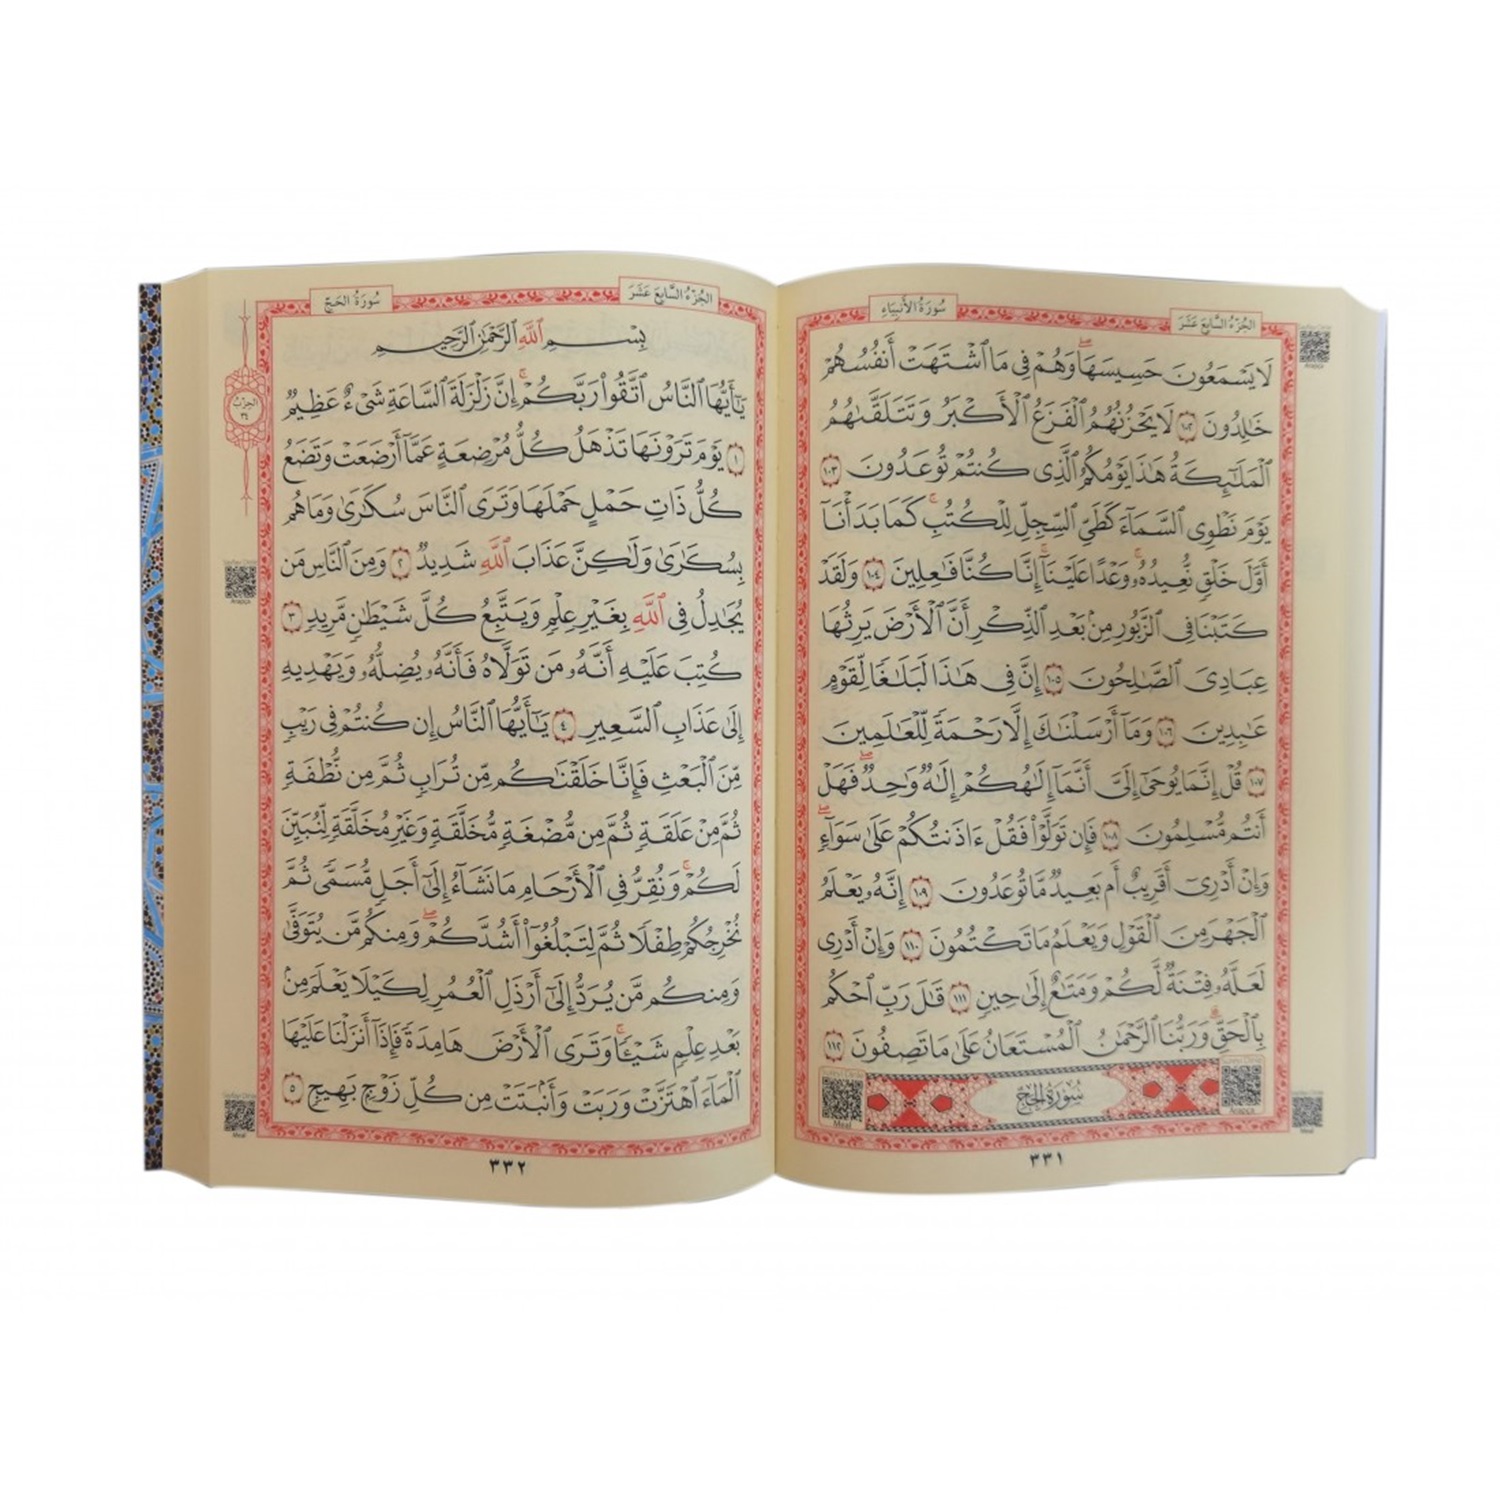 الجُزْءُ السَّابِعَ عَشَرَ
سُورَةُ الأَنبِيَاءِ
لَا يَسْمَعُونَ حَسِيسَهَا ۖ وَهُمْ فِى مَا ٱشْتَهَتْ أَنفُسُهُمْ
خَٰلِدُونَ ١٠٢ لَا يَحْزُنُهُمُ ٱلْفَزَعُ ٱلْأَكْبَرُ وَتَتَلَقَّىٰهُمُ
ٱلْمَلَٰٓئِكَةُ هَٰذَا يَوْمُكُمُ ٱلَّذِى كُنتُمْ تُوعَدُونَ ١٠٣
يَوْمَ نَطْوِى ٱلسَّمَآءَ كَطَىِّ ٱلسِّجِلِّ لِلْكُتُبِ ۚ كَمَا بَدَأْنَآ
أَوَّلَ خَلْقٍ نُّعِيدُهُۥ ۚ وَعْدًا عَلَيْنَآ ۚ إِنَّا كُنَّا فَٰعِلِينَ ١٠٤ وَلَقَدْ
كَتَبْنَا فِى ٱلزَّبُورِ مِنۢ بَعْدِ ٱلذِّكْرِ أَنَّ ٱلْأَرْضَ يَرِثُهَا
عِبَادِىَ ٱلصَّٰلِحُونَ ١٠٥ إِنَّ فِى هَٰذَا لَبَلَٰغًا لِّقَوْمٍ
عَٰبِدِينَ ١٠٦ وَمَآ أَرْسَلْنَٰكَ إِلَّا رَحْمَةً لِّلْعَٰلَمِينَ
١٠٧ قُلْ إِنَّمَا يُوحَىٰٓ إِلَىَّ أَنَّمَآ إِلَٰهُكُمْ إِلَٰهٌ وَٰحِدٌ ۖ فَهَلْ
أَنتُم مُّسْلِمُونَ ١٠٨ فَإِن تَوَلَّوْا۟ فَقُلْ ءَاذَنتُكُمْ عَلَىٰ سَوَآءٍ ۖ
وَإِنْ أَدْرِىٓ أَقَرِيبٌ أَم بَعِيدٌ مَّا تُوعَدُونَ ١٠٩ إِنَّهُۥ يَعْلَمُ
ٱلْجَهْرَ مِنَ ٱلْقَوْلِ وَيَعْلَمُ مَا تَكْتُمُونَ ١١٠ وَإِنْ أَدْرِى
لَعَلَّهُۥ فِتْنَةٌ لَّكُمْ وَمَتَٰعٌ إِلَىٰ حِينٍ ١١١ قَٰلَ رَبِّ ٱحْكُم
بِٱلْحَقِّ ۗ وَرَبُّنَا ٱلرَّحْمَٰنُ ٱلْمُسْتَعَانُ عَلَىٰ مَا تَصِفُونَ ١١٢
سُورَةُ الحَجّ
Meal
Arapça
٣٣١
الجُزْءُ السَّابِعَ عَشَرَ
سُورَةُ الحَجّ
بِسْمِ ٱللَّهِ ٱلرَّحْمَٰنِ ٱلرَّحِيمِ
يَٰٓأَيُّهَا ٱلنَّاسُ ٱتَّقُوا۟ رَبَّكُمْ ۚ إِنَّ زَلْزَلَةَ ٱلسَّاعَةِ شَىْءٌ عَظِيمٌ
١ يَوْمَ تَرَوْنَهَا تَذْهَلُ كُلُّ مُرْضِعَةٍ عَمَّآ أَرْضَعَتْ وَتَضَعُ
كُلُّ ذَاتِ حَمْلٍ حَمْلَهَا وَتَرَى ٱلنَّاسَ سُكَٰرَىٰ وَمَا هُم
بِسُكَٰرَىٰ وَلَٰكِنَّ عَذَابَ ٱللَّهِ شَدِيدٌ ٢ وَمِنَ ٱلنَّاسِ مَن
يُجَٰدِلُ فِى ٱللَّهِ بِغَيْرِ عِلْمٍ وَيَتَّبِعُ كُلَّ شَيْطَٰنٍ مَّرِيدٍ ٣
كُتِبَ عَلَيْهِ أَنَّهُۥ مَن تَوَلَّاهُ فَأَنَّهُۥ يُضِلُّهُۥ وَيَهْدِيهِ
إِلَىٰ عَذَابِ ٱلسَّعِيرِ ٤ يَٰٓأَيُّهَا ٱلنَّاسُ إِن كُنتُمْ فِى رَيْبٍ
مِّنَ ٱلْبَعْثِ فَإِنَّا خَلَقْنَٰكُم مِّن تُرَابٍ ثُمَّ مِن نُّطْفَةٍ
ثُمَّ مِنْ عَلَقَةٍ ثُمَّ مِن مُّضْغَةٍ مُّخَلَّقَةٍ وَغَيْرِ مُخَلَّقَةٍ لِّنُبَيِّنَ
لَكُمْ ۚ وَنُقِرُّ فِى ٱلْأَرْحَامِ مَا نَشَآءُ إِلَىٰٓ أَجَلٍ مُّسَمًّى ثُمَّ
نُخْرِجُكُمْ طِفْلًا ثُمَّ لِتَبْلُغُوٓا۟ أَشُدَّكُمْ ۖ وَمِنكُم مَّن يُتَوَفَّىٰ
وَمِنكُم مَّن يُرَدُّ إِلَىٰٓ أَرْذَلِ ٱلْعُمُرِ لِكَيْلَا يَعْلَمَ مِنۢ
بَعْدِ عِلْمٍ شَيْـًٔا ۚ وَتَرَى ٱلْأَرْضَ هَامِدَةً فَإِذَآ أَنزَلْنَا عَلَيْهَا
ٱلْمَآءَ ٱهْتَزَّتْ وَرَبَتْ وَأَنۢبَتَتْ مِن كُلِّ زَوْجٍۭ بَهِيجٍ ٥
Arapça
Meal
٣٣٢